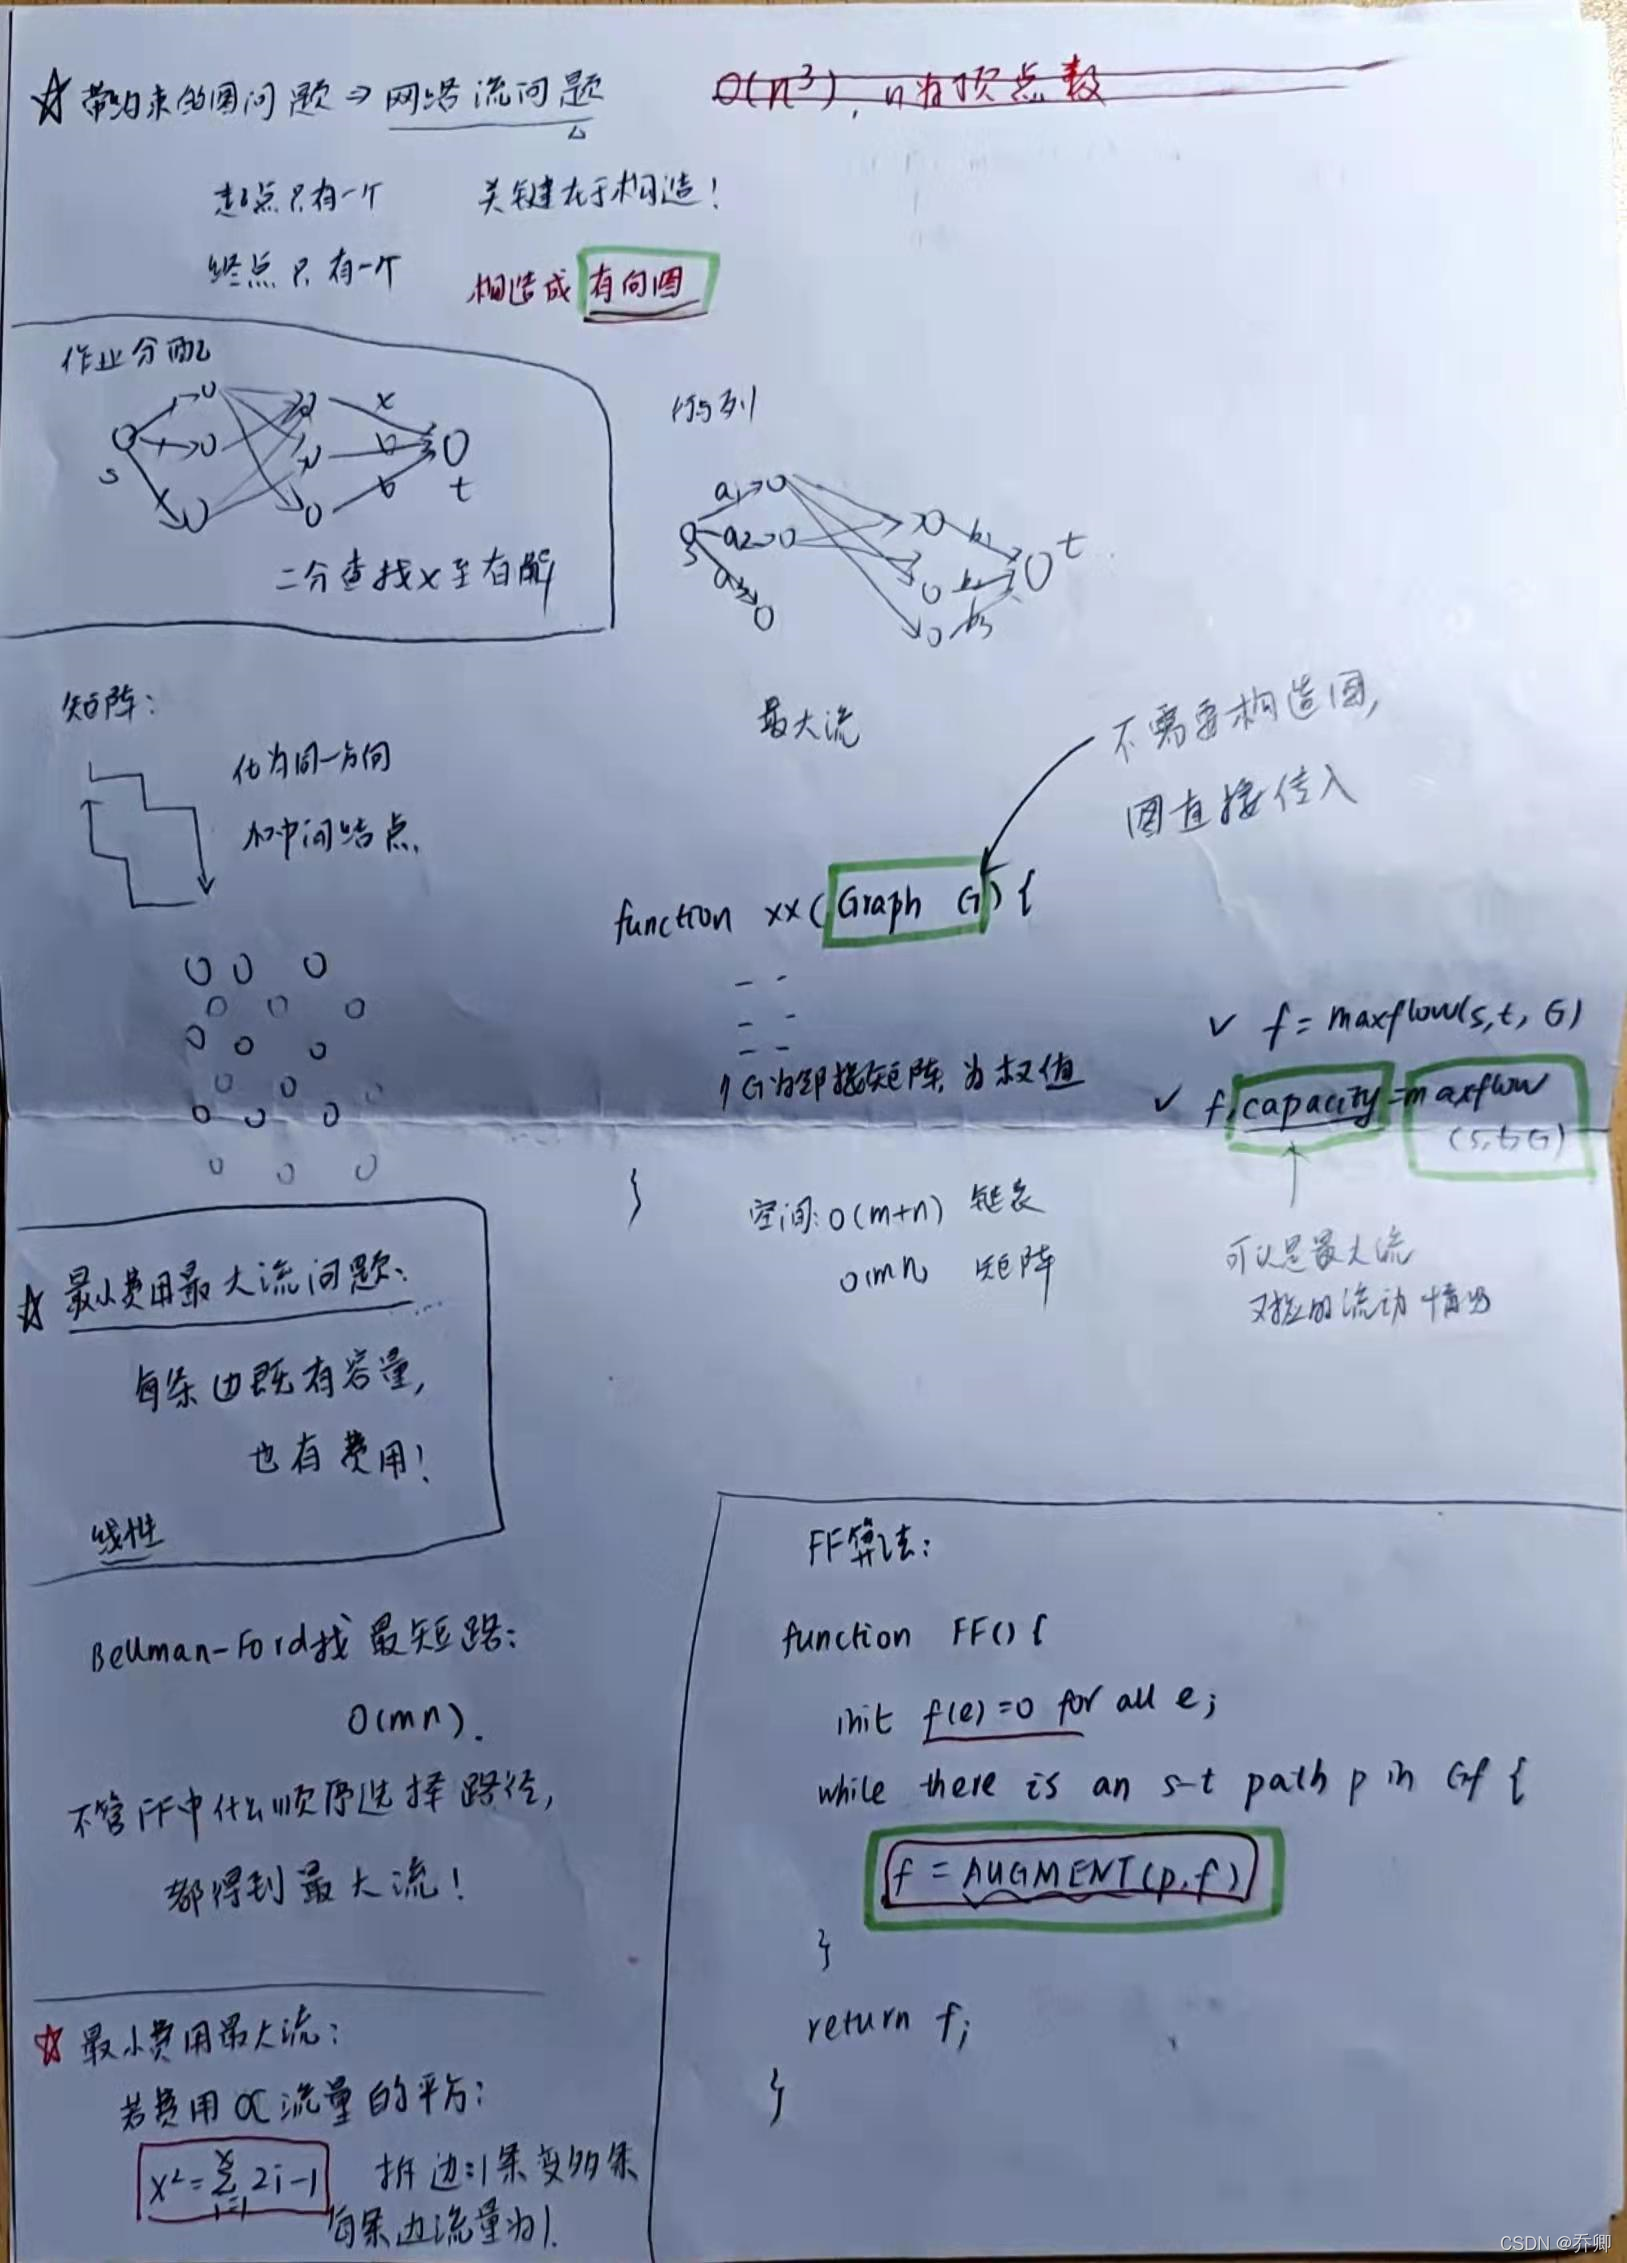 ☆ 带约束的图问题 ⇒ 网络流问题
O(n³), n为顶点数
起点只有一个 关键在于构造!
终点只有一个 构造成 有向图
作业分配
s
x
b
b
t
二分查找x至有解
行列
a₁
a₂
a₃
s
b₁
b₂
b₃
t
矩阵:
化为同一方向
加中间结点.
最大流
不需要构造图,
图直接传入
function xx(Graph G) {
// G为邻接矩阵, 为权值
}
✓ f = maxflow(s,t, G)
✓ f.capacity = maxflow
(s,t,G)
可以是最大流
对应的流动情况
空间: O(m+n) 链表
O(mn) 矩阵
☆ 最小费用最大流问题:
每条边既有容量,
也有费用!
线性
Bellman-Ford找最短路:
O(mn).
不管FF中什么顺序选择路径,
都得到最大流!
☆ 最小费用最大流:
若费用 ∝ 流量的平方:
x² = Σ 2i-1
x
i=1
拆边:1条变多条
每条边流量为1.
FF算法:
function FF() {
init f(e)=0 for all e;
while there is an s-t path p in Gf {
f = AUGMENT(p,f)
}
return f;
}
CSDN @乔卿